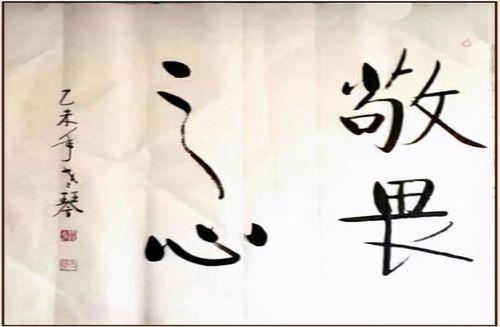 敬畏
之心
乙未年
琴